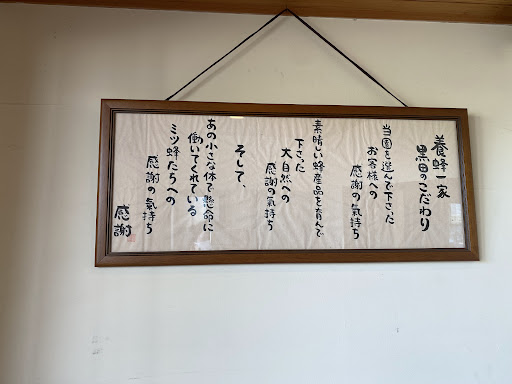 養蜂一家
黒田のこだわり
当園を選んで下さった
お客様への
感謝の氣持ち
素晴しい蜂産品を育んで
下さった
大自然への
感謝の氣持ち
そして、
あの小さな体で懸命に
働いてくれている
ミツ蜂たちへの
感謝の氣持ち
感謝